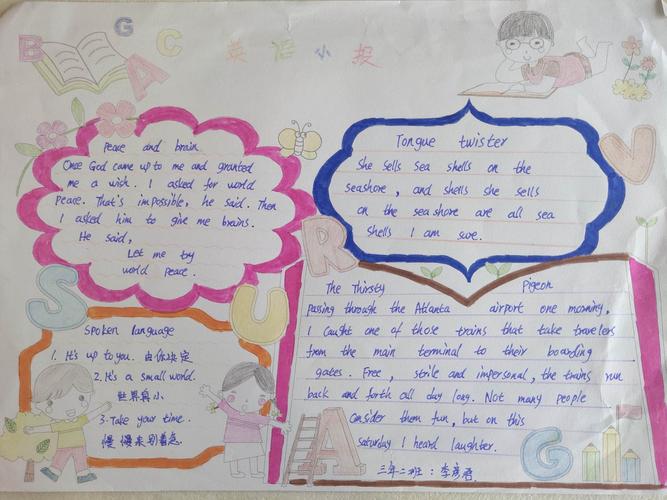 B G C A
英语小报
Peace and brain
Once God came up to me and granted
me a wish. I asked for world
Peace. That's impossible, he said. Then
I asked him to give me brains.
He said,
Let me try
world peace.
Tongue twister
She sells sea shells on the
seashore, and shells she sells
on the seashore are all sea
shells I am sure.
V
R
S
U
Spoken language
1. It's up to you. 由你决定
2. It's a small world.
世界真小
3. Take your time.
慢慢来别着急
The Thirsty Pigeon
passing through the Atlanta airport one morning,
I caught one of those trains that take travelers
from the main terminal to their boarding
gates. Free, strile and impersonal, the trains run
back and forth all day long. Not many people
Consider them fun, but on this
Saturday I heard laughter.
A
G
三年二班:李彦